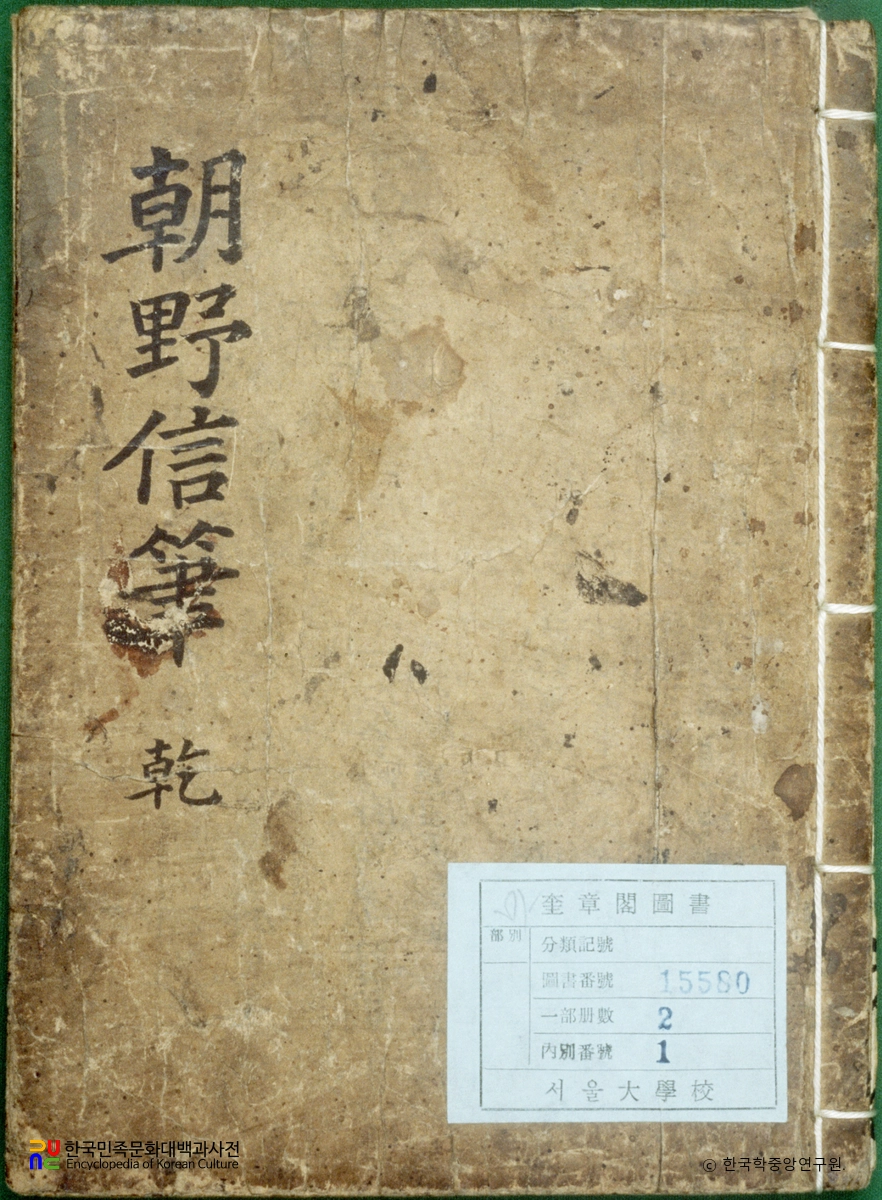 朝野信筆 乾
奎章閣圖書
部別
分類記號
圖書番號 15580
一部册數 2
內別番號 1
서울大學校
한국민족문화대백과사전
Encyclopedia of Korean Culture
© 한국학중앙연구원.